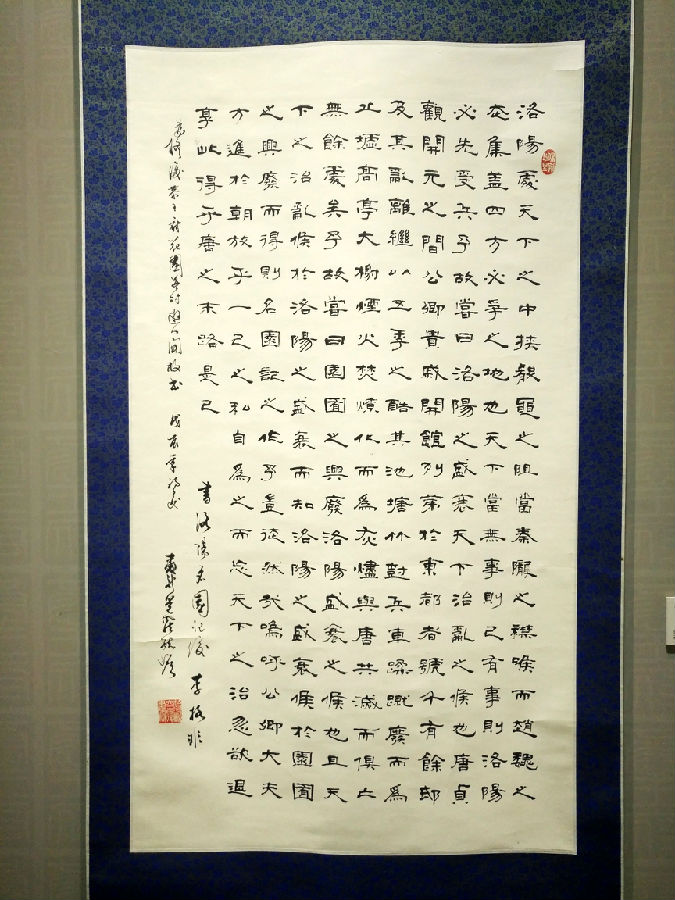 洛陽處天下之中挾殽黽之阻當秦隴之襟喉而趙魏之
走集蓋四方必爭之地也天下當無事則已有事則洛陽
必先受兵予故嘗曰洛陽之盛衰天下治亂之候也唐貞
觀開元之間公卿貴戚開館列第於東都者號千有餘邸
及其亂離繼以五季之酷其池塘竹樹兵車蹂蹴廢而為
丘墟高亭大榭煙火焚燎化而為灰燼與唐共滅而俱亡
無餘處矣予故嘗曰園囿之興廢洛陽盛衰之候也且天
下之治亂候於洛陽之盛衰而知洛陽之盛衰候於園囿
之興廢而得則名園記之作予豈徒然哉嗚呼公卿大夫
方進於朝放乎一己之私自為之而忘天下之治忽欲退
享此得乎唐之末路是已
書洛陽名園記後 李格非